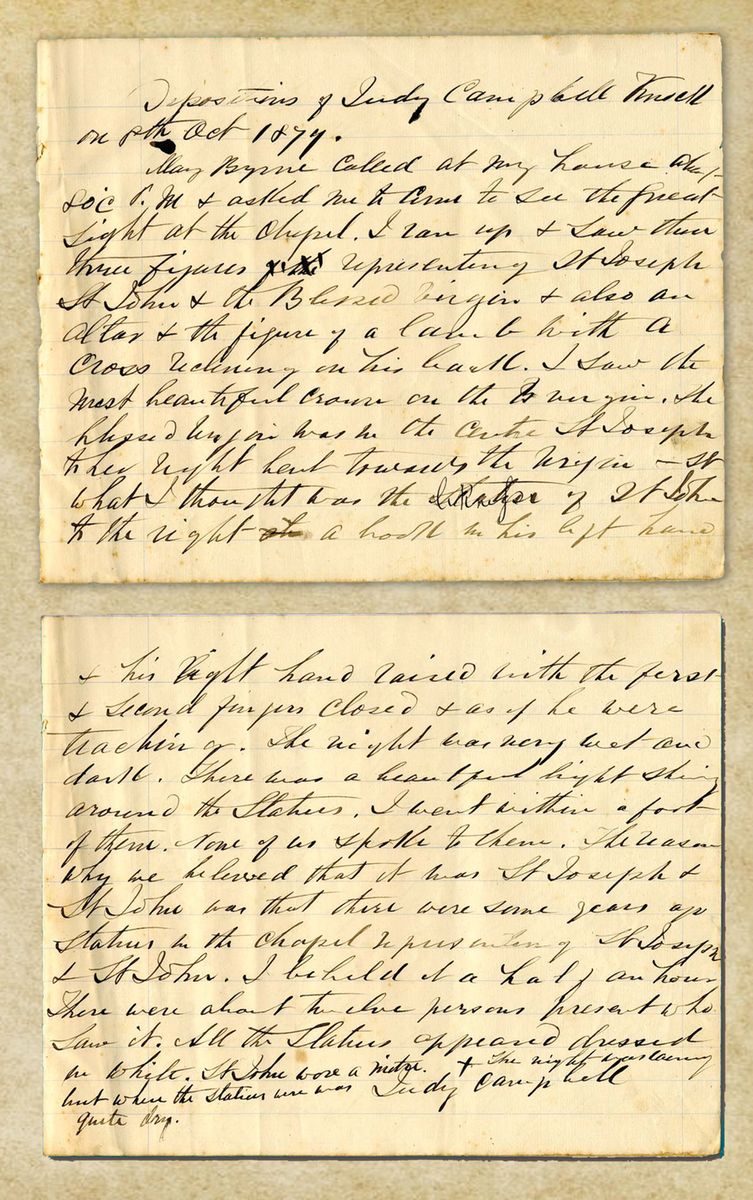 Depositions of Judy Campbell Knock
on 8th Oct 1879.
Mary Byrne called at my house about
8 o'c P.M & asked me to come to see the great
sight at the chapel. I ran up & saw there
three figures representing St Joseph
St John & the Blessed Virgin & also an
altar & the figure of a lamb with a
cross reclining on his back. I saw the
most beautiful crown on the virgin. The
blessed Virgin was in the centre St Joseph
to her right bent towards the Virgin - St
what I thought was the of St John
to the right a book in his left hand
& his right hand raised with the first
& second fingers closed & as if he were
teaching. The night was very wet and
dark. There was a beautiful light shining
around the Statues. I went within a foot
of them. None of us spoke to them. The reason
why we believed that it was St Joseph &
St John was that there were some years ago
Statues in the Chapel representing St Joseph
& St John. I beheld it a half an hour
There were about twelve persons present who
saw it. All the Statues appeared dressed
in white. St John wore a mitre. + The night was raining
but where the statues were was Judy Campbell
quite dry.